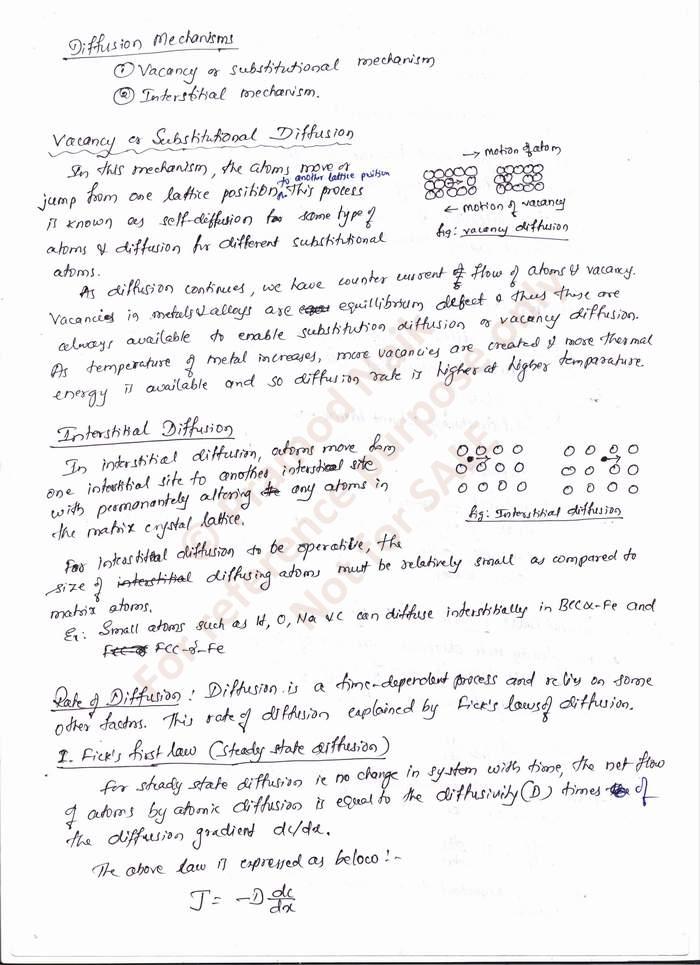 Diffusion Mechanisms
① Vacancy or substitutional mechanism
② Interstitial mechanism.
Vacancy or Substitutional Diffusion
In this mechanism, the atoms move or
jump from one lattice position to another lattice position. This process
is known as self-diffusion for same type of
atoms & diffusion for different substitutional
atoms.
→ motion of atom
← motion of vacancy
fig: vacancy diffusion
As diffusion continues, we have counter current of flow of atoms & vacancy.
Vacancies in metals & alloys are equillibrium defect & thus these are
always available to enable substitution diffusion or vacancy diffusion.
As temperature of metal increases, more vacancies are created & more thermal
energy is available and so diffusion rate is higher at higher temparature.
Interstitial Diffusion
In interstitial diffusion, atoms move from
one interstitial site to another interstitial site
with permonantely altering any atoms in
the matrix crystal lattice.
fig: Interstitial diffusion
For Interstitial diffusion to be operative, the
size of interstitial diffusing atoms must be relatively small as compared to
matrix atoms.
Ex: Small atoms such as H, O, Na & C can diffuse interstitially in BCC α-Fe and
FCC-γ-Fe
Rate of Diffusion: Diffusion is a time-dependent process and reliy on some
other factors. This rate of diffusion explained by Fick's laws of diffusion.
I. Fick's first law (steady state diffusion)
For steady state diffusion ie no change in system with time, the net flow
of atoms by atomic diffusion is equal to the diffusivity (D) times of
the diffusion gradient dc/dx.
The above law is expressed as below:-
J = -D dc/dx
© Pramod Naik
For reference purpose only
Not for SALE